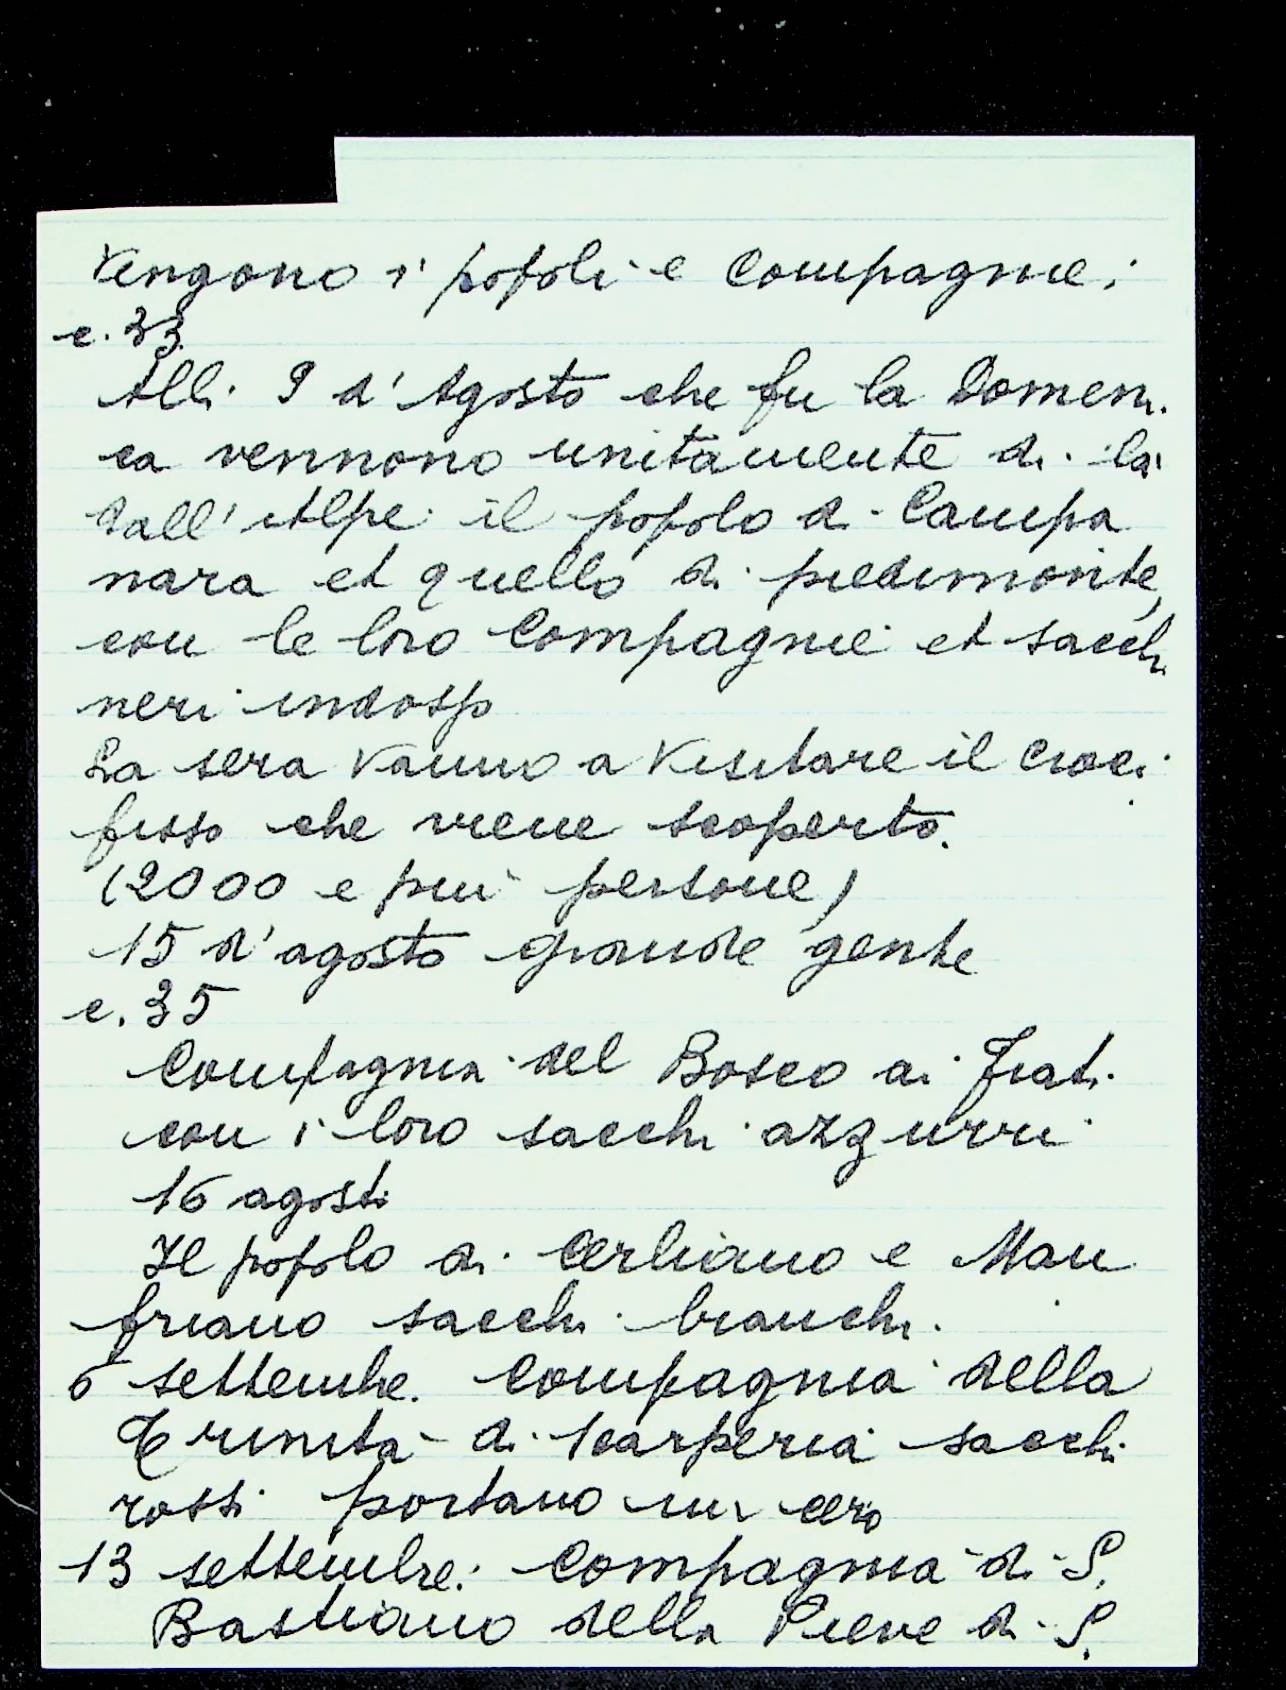 Vengono i popoli e Compagnie:
c. 33.
Alli 9 d'Agosto che fu la Domeni-
ca vennono unitamente di là
dall'Alpe il popolo di Campa
nara et quello di piedimonte,
con le loro Compagnie et sacchi
neri indosso
La sera vanno a visitare il Croci
fisso che viene scoperto.
(2000 e più persone)
15 d'agosto grande gente
c. 35
Compagnia del Bosco ai Frati
con i loro sacchi azzurri
16 agosto
Il popolo di Cerliano e Man
friano sacchi bianchi.
6 settembre. Compagnia della
Trinità di Scarperia sacchi
rossi portano un cero
13 settembre: Compagnia di S.
Bastiano della Pieve di S.